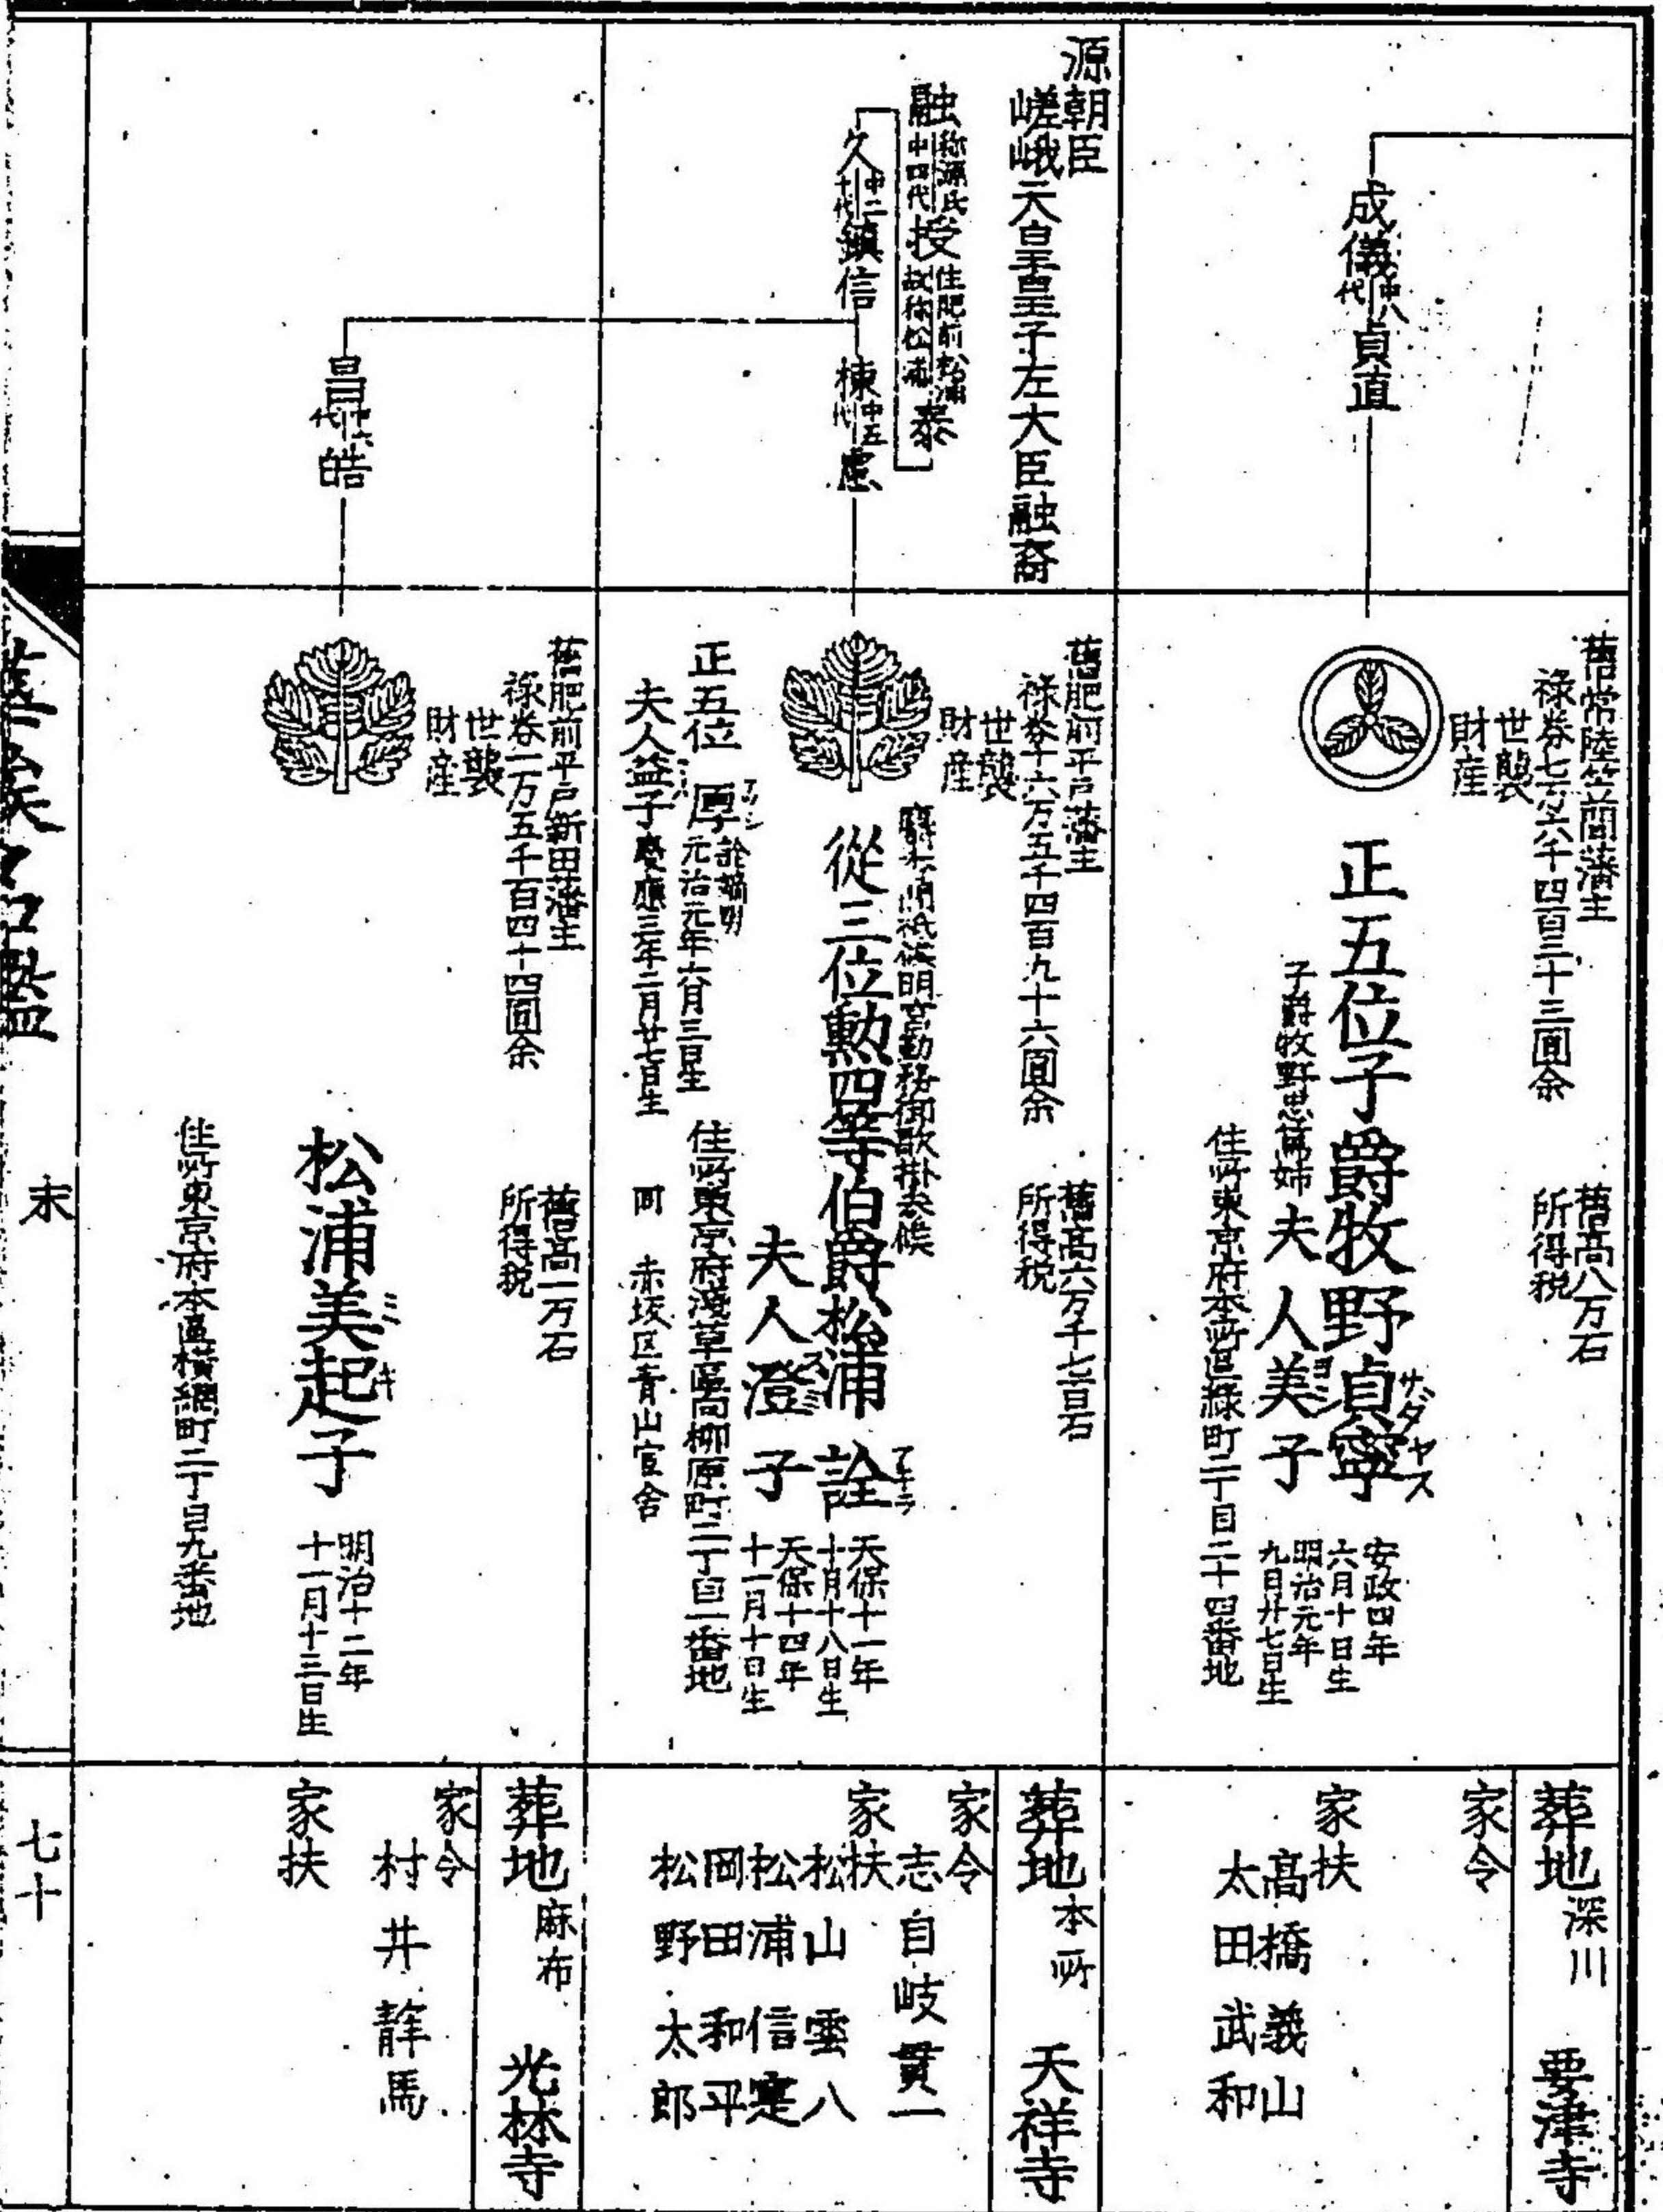 成儀
中八代
貞直
舊常陸笠間藩主
禄券七万六千四百三十三圓余
世襲財産
舊高八万石
所得税
正五位子爵牧野貞寧
サダヤス
安政四年六月十日生
夫人美子
ヨシ
明治元年九月廿七日生
住所東京府本所區緑町二丁目二十四番地
葬地 深川 要津寺
家令
家扶
高橋義山
太田武和
源朝臣
嵯峨天皇皇子左大臣融裔
融
中四代
授
住肥前松浦
故称松浦
泰
久
中二十代
鎮信
棟
中五代
舊肥前平戸藩主
禄券十六万五千四百九十六圓余
世襲財産
舊高六万千七百石
所得税
從三位勲四等伯爵松浦 詮
アキラ
天保十一年十月十八日生
夫人澄子
スミ
天保十四年十一月十日生
正五位 厚
アツシ
元治元年六月三日生
夫人益子
慶應三年二月廿七日生
住所東京府淺草區向柳原町二丁目一番地
同 赤坂区青山官舎
葬地 本所 天祥寺
家令
志自岐貫一
家扶
松山雲八
松浦信寔
岡田和平
松野太郎
昌
中六代
皓
舊肥前平戸新田藩主
禄券一万五千百四十四圓余
世襲財産
舊高一万石
所得税
松浦美起子
ミキ
明治十二年十一月十三日生
住所東京府本所區横網町二丁目九番地
葬地 麻布 光林寺
家令
村井静馬
家扶
末
七十